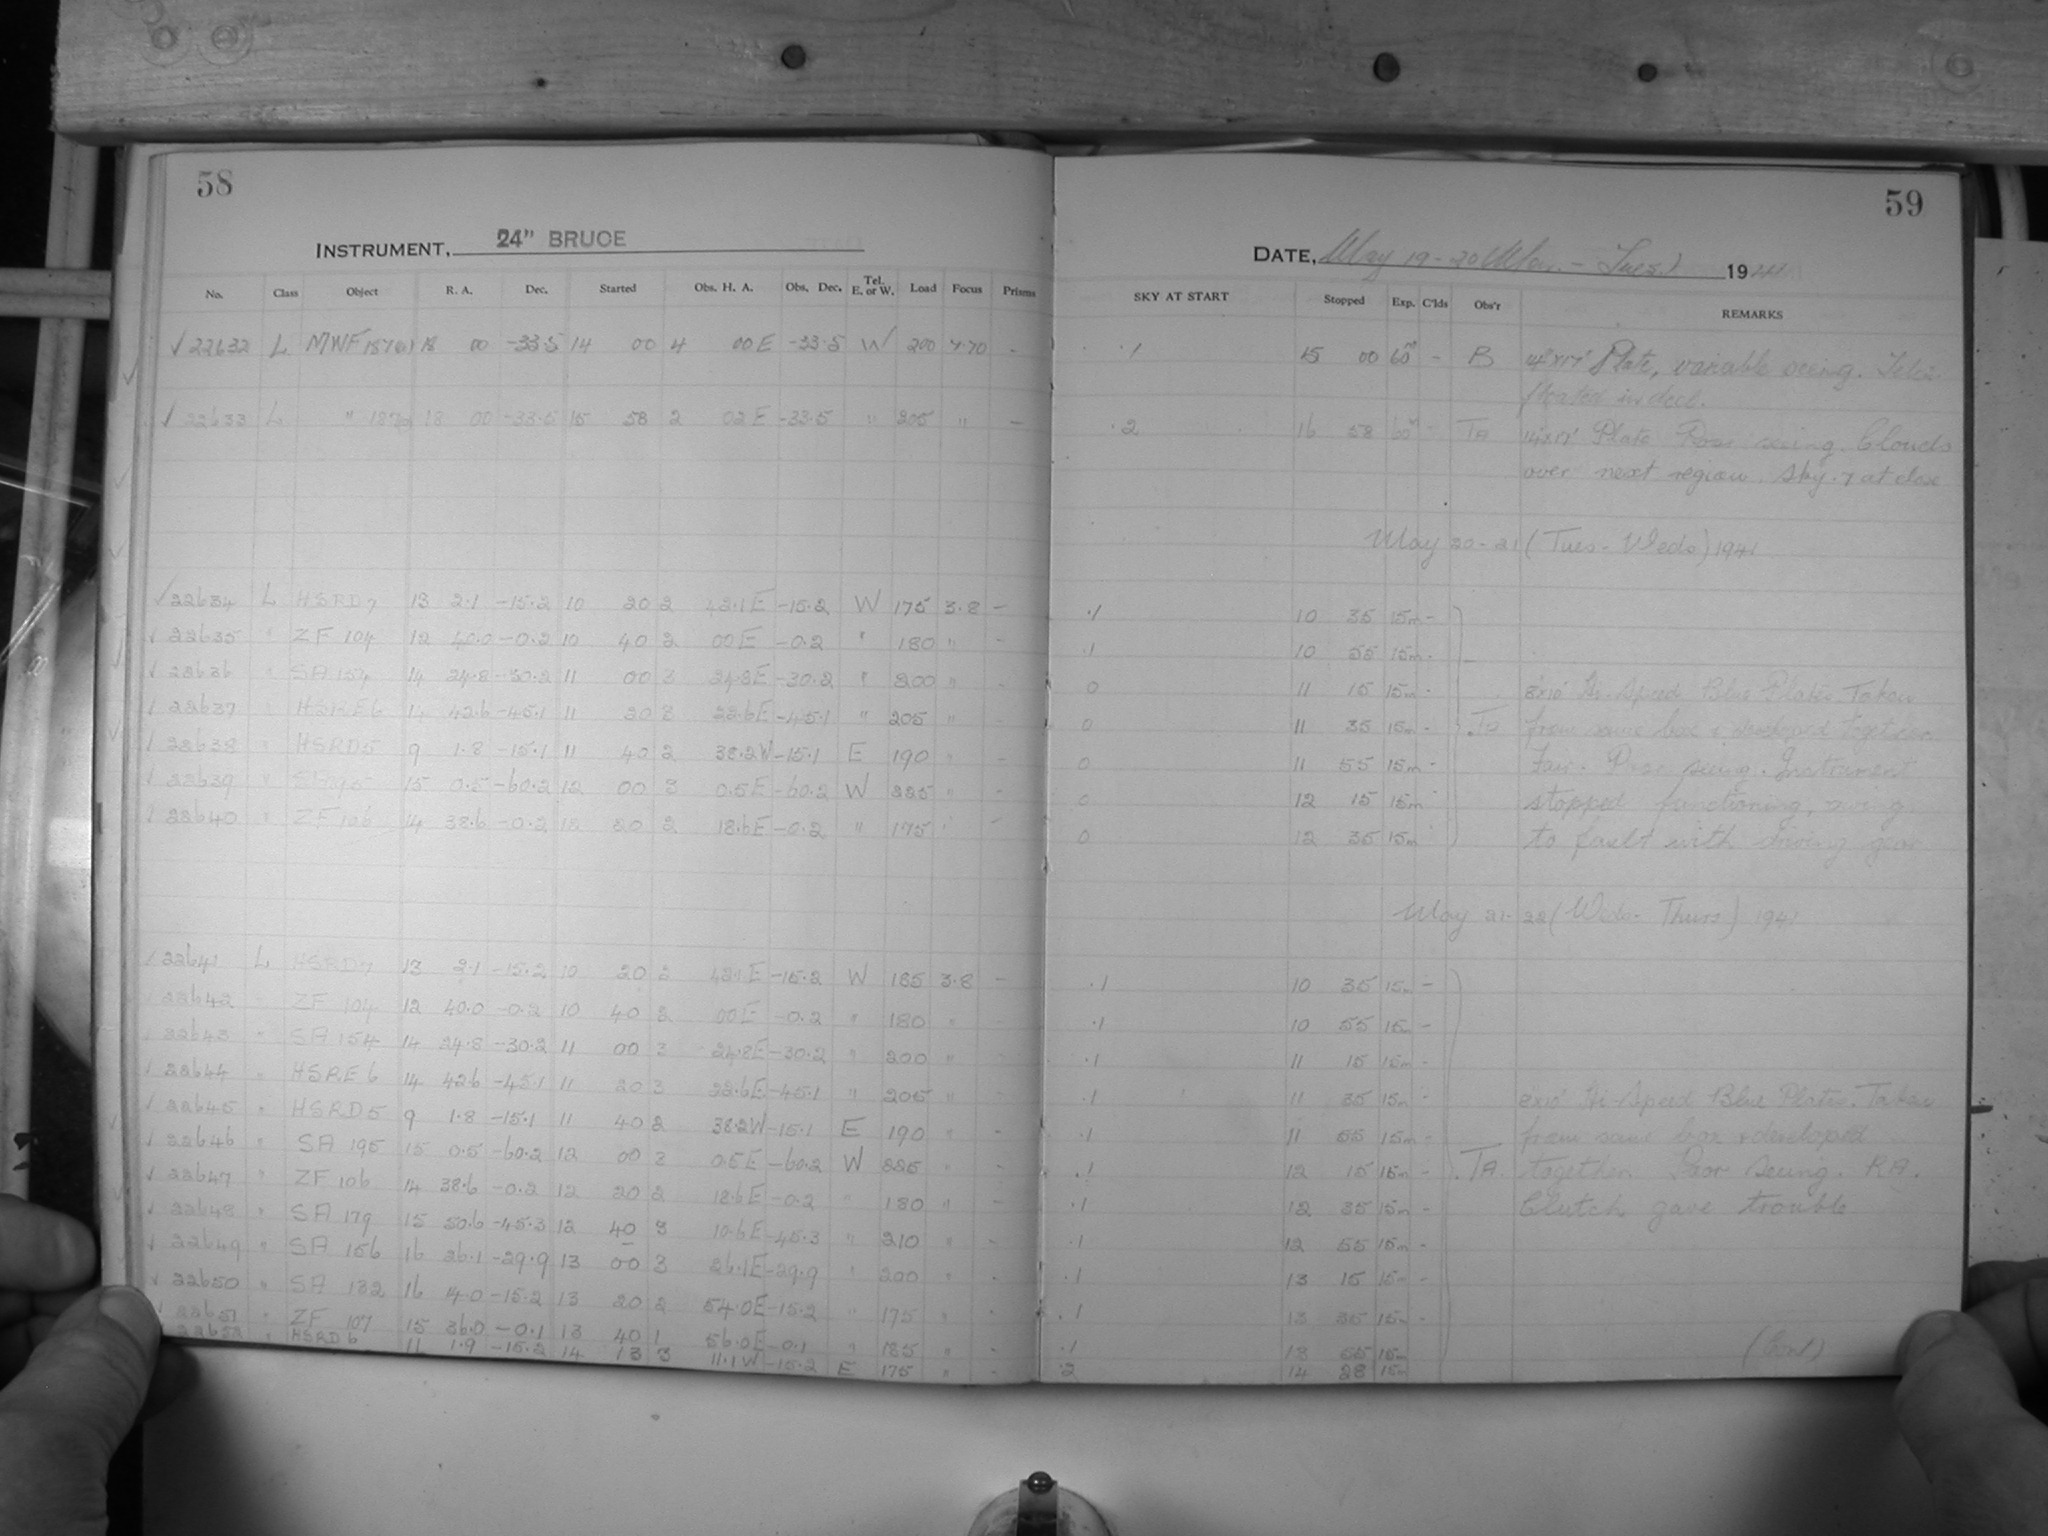 58
INSTRUMENT, 24" BRUCE
No. Class Object R. A. Dec. Started Obs. H. A. Obs. Dec. Tel. E. or W. Load Focus Prisms
✓ 22632 L MWF 18 00 -33.5 14 00 4 00 E -33.5 W 200 7.70 -
✓ 22633 L " 18 00 -33.5 15 58 2 02 E -33.5 " 205 " -
✓ 22634 L HSRD7 13 2.1 -15.2 10 20 2 42.1 E -15.2 W 175 3.8 -
✓ 22635 " ZF 104 12 40.0 -0.2 10 40 2 00 E -0.2 " 180 " -
✓ 22636 " SA 154 14 24.8 -30.2 11 00 3 24.8E -30.2 " 200 " -
✓ 22637 " HSRE6 14 42.6 -45.1 11 20 3 22.6E -45.1 " 205 " -
✓ 22638 " HSRD5 9 1.8 -15.1 11 40 2 38.2W -15.1 E 190 " -
✓ 22639 " SA 195 15 0.5 -60.2 12 00 3 0.5E -60.2 W 225 " -
✓ 22640 " ZF 106 14 38.6 -0.2 12 20 2 18.6E -0.2 " 175 " -
✓ 22641 L HSRD7 13 2.1 -15.2 10 20 2 42.1 E -15.2 W 185 3.8 -
✓ 22642 " ZF 104 12 40.0 -0.2 10 40 2 00 E -0.2 " 180 " -
✓ 22643 " SA 154 14 24.8 -30.2 11 00 3 24.8E -30.2 " 200 " -
✓ 22644 " HSRE6 14 42.6 -45.1 11 20 3 22.6E -45.1 " 205 " -
✓ 22645 " HSRD5 9 1.8 -15.1 11 40 2 38.2W -15.1 E 190 " -
✓ 22646 " SA 195 15 0.5 -60.2 12 00 3 0.5E -60.2 W 225 " -
✓ 22647 " ZF 106 14 38.6 -0.2 12 20 2 18.6E -0.2 " 180 " -
✓ 22648 " SA 179 15 50.6 -45.3 12 40 3 10.6E -45.3 " 210 " -
✓ 22649 " SA 156 16 26.1 -29.9 13 00 3 26.1E -29.9 " 200 " -
✓ 22650 " SA 132 16 14.0 -15.2 13 20 2 54.0E -15.2 " 175 " -
22651 " ZF 107 15 36.0 -0.1 13 40 1 56.0E -0.1 " 185 " -
22652 " HSRD6 11 1.9 -15.2 14 13 3 11.1W -15.2 E 175 " -
59
DATE, May 19-20 (Mon. - Tues.) 1941
SKY AT START Stopped Exp. C'lds Obs'r REMARKS
.1 15 00 60m - B 14"x17" Plate, variable seeing. Tele.
floated in decl.
.2 16 58 60m - TA 14"x17" Plate Poor seeing. Clouds
over next region. Sky .7 at close
May 20-21 (Tues - Weds) 1941
.1 10 35 15m -
.1 10 55 15m -
0 11 15 15m - 8"x10" Hi-Speed Blue Plates Taken
0 11 35 15m - TA from same box & developed together
0 11 55 15m - Fair - Poor seeing. Instrument
0 12 15 15m - stopped functioning, owing
0 12 35 15m to fault with driving gear
May 21-22 (Weds - Thurs) 1941
.1 10 35 15m -
.1 10 55 15m -
.1 11 15 15m -
.1 11 35 15m - 8"x10" Hi-Speed Blue Plates. Taken
.1 11 55 15m - from same box & developed
.1 12 15 15m - TA. together. Poor seeing. RA.
.1 12 35 15m - Clutch gave trouble
.1 12 55 15m -
.1 13 15 15m -
.1 13 35 15m -
.1 13 55 15m (Cont)
.2 14 28 15m